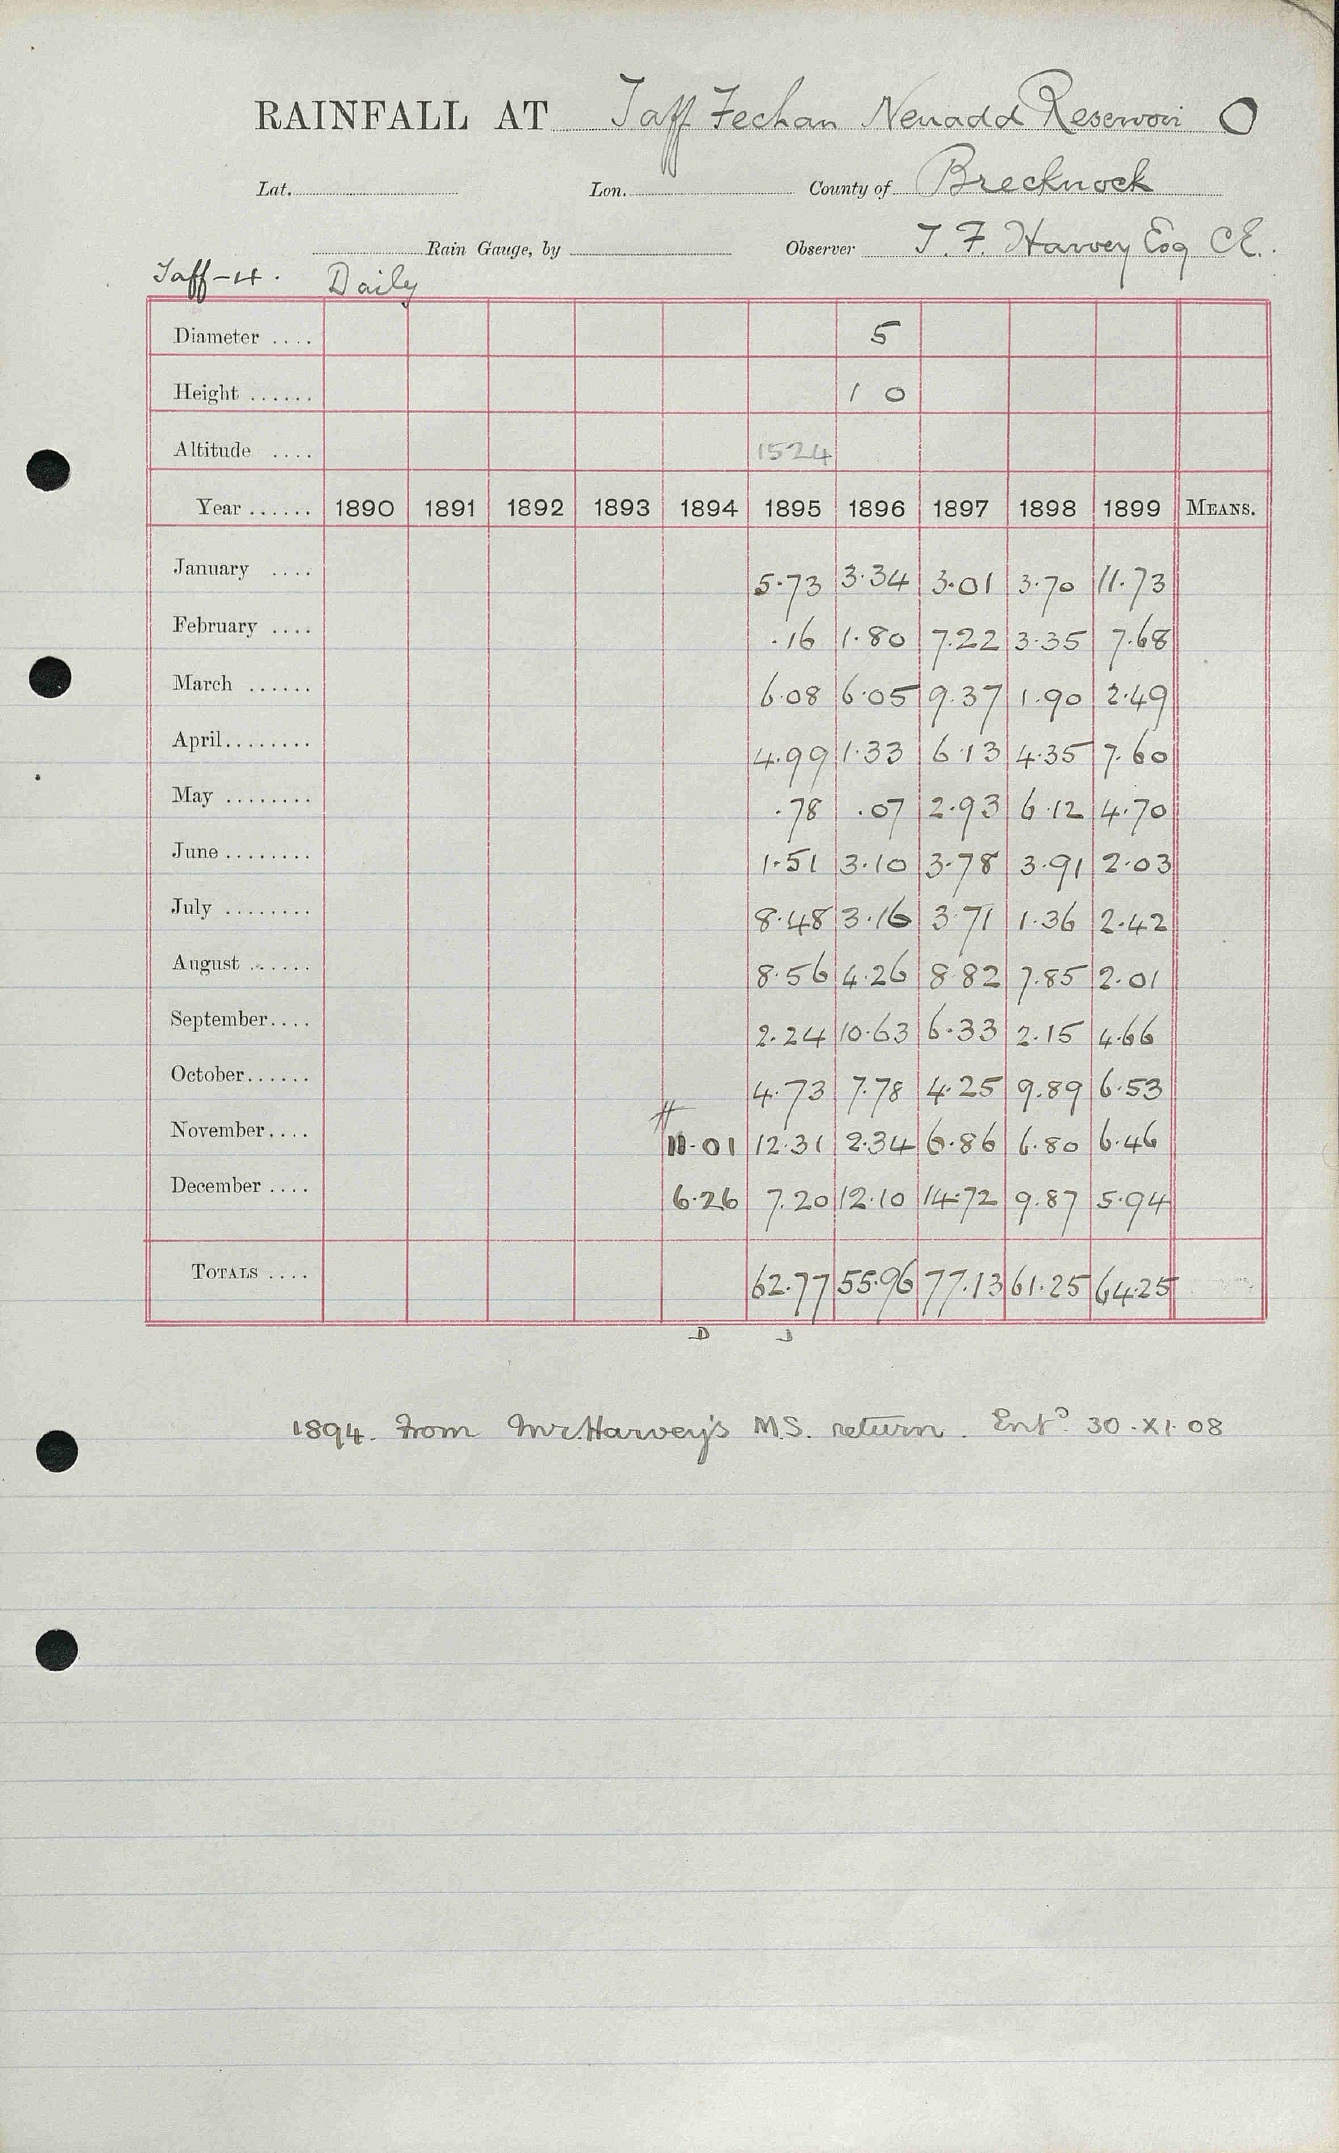 RAINFALL AT Taff Fechan Neuadd Reservoir O
Lat. Lon. County of Brecknock
Rain Gauge, by Observer T. F. Harvey Esq CE.
Taff-4. Daily
Diameter .... 5
Height ...... 1 0
Altitude .... 1524
Year ...... 1890 1891 1892 1893 1894 1895 1896 1897 1898 1899 MEANS.
January .... 5.73 3.34 3.01 3.70 11.73
February .... .16 1.80 7.22 3.35 7.68
March ...... 6.08 6.05 9.37 1.90 2.49
April ........ 4.99 1.33 6.13 4.35 7.60
May ........ .78 .07 2.93 6.12 4.70
June ........ 1.51 3.10 3.78 3.91 2.03
July ........ 8.48 3.16 3.71 1.36 2.42
August ...... 8.56 4.26 8.82 7.85 2.01
September.... 2.24 10.63 6.33 2.15 4.66
October...... 4.73 7.78 4.25 9.89 6.53
November.... 11.01 12.31 2.34 6.86 6.80 6.46
December .... 6.26 7.20 12.10 14.72 9.87 5.94
TOTALS .... 62.77 55.96 77.13 61.25 64.25
D J
1894. From Mr. Harvey's M.S. return. Entd 30.XI.08